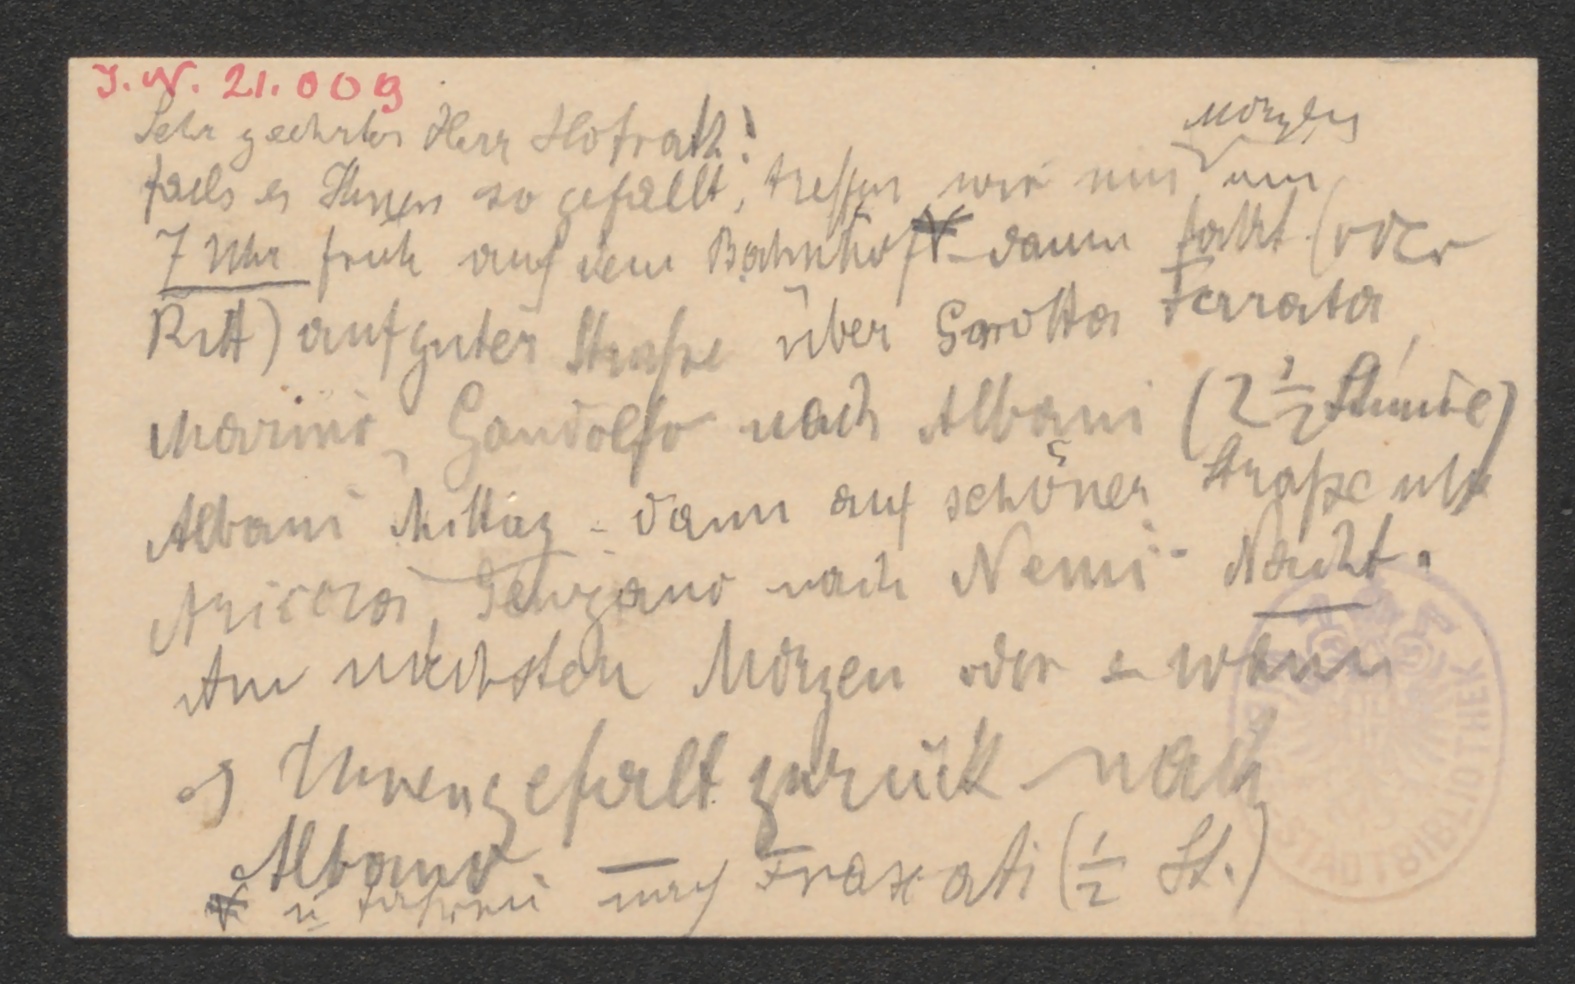 J.N. 21.009
Sehr geehrter Herr Hofrath!
falls es Ihnen so gefällt, treffen wir uns morgen um
7 Uhr früh auf dem Bahnhof – dann Fahrt (oder
Ritt) auf guter Straße über Grotta Ferrata,
Marino, Gandolfo nach Albani (2 1/2 Stunde)
Albani Mittag – dann auf schöner Straße
Ariccia, Genzano nach Nemi – Nacht.
Am nächsten Morgen oder – wann
es Ihnen gefällt zurück nach
Albano
u fahren nach Fraskati (1/2 St.)
STADTBIBLIOTHEK